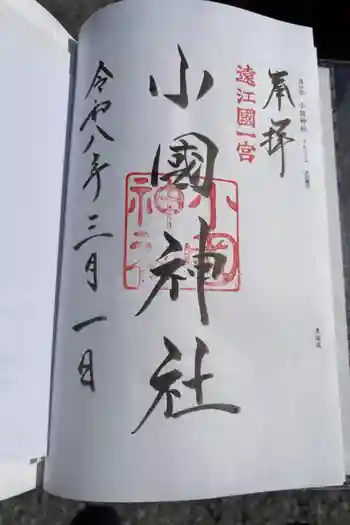 奉拝
遠江國一宮
小國神社
小國神社
令和八年三月一日